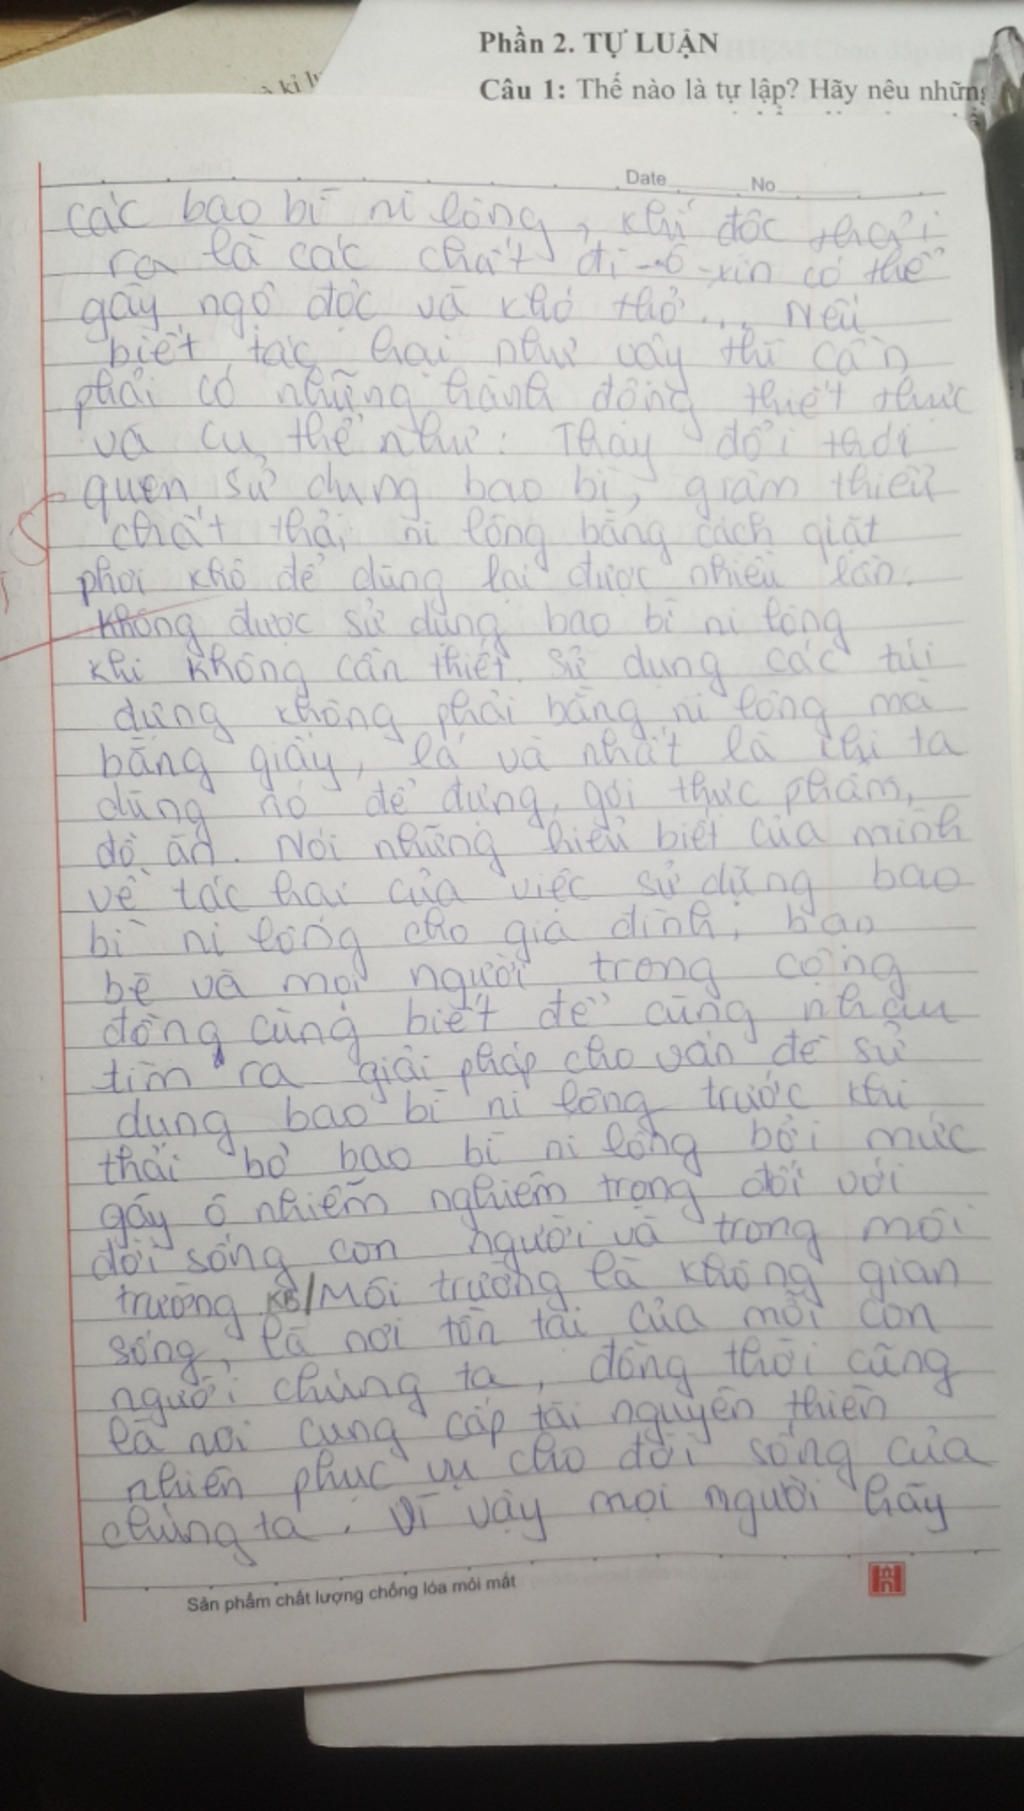 Phần 2. TỰ LUẬN
Câu 1: Thế nào là tự lập? Hãy nêu những
Date No
các bao bì ni lông, khí độc thải
ra là các chất đi-ô-xin có thể
gây ngộ độc và khó thở... Nếu
biết tác hại như vậy thì cần
phải có những hành động thiết thực
và cụ thể như: Thay đổi thói
quen sử dụng bao bì, giảm thiểu
chất thải ni lông bằng cách giặt
phơi khô để dùng lại được nhiều lần.
Không được sử dụng bao bì ni lông
khi không cần thiết. Sử dụng các túi
đựng không phải bằng ni lông mà
bằng giấy, lá và nhất là khi ta
dùng nó để đựng, gói thực phẩm,
đồ ăn. Nói những hiểu biết của mình
về tác hại của việc sử dụng bao
bì ni lông cho gia đình, bạn
bè và mọi người trong cộng
đồng cùng biết để cùng nhau
tìm ra giải pháp cho vấn đề sử
dụng bao bì ni lông trước khi
thải bỏ bao bì ni lông bởi mức
gây ô nhiễm nghiêm trọng đối với
đời sống con người và trong môi
trường KB/Môi trường là không gian
sống, là nơi tồn tại của mỗi con
người chúng ta, đồng thời cũng
là nơi cung cấp tài nguyên thiên
nhiên phục vụ cho đời sống của
chúng ta. Vì vậy mọi người hãy
Sản phẩm chất lượng chống lóa mỏi mắt